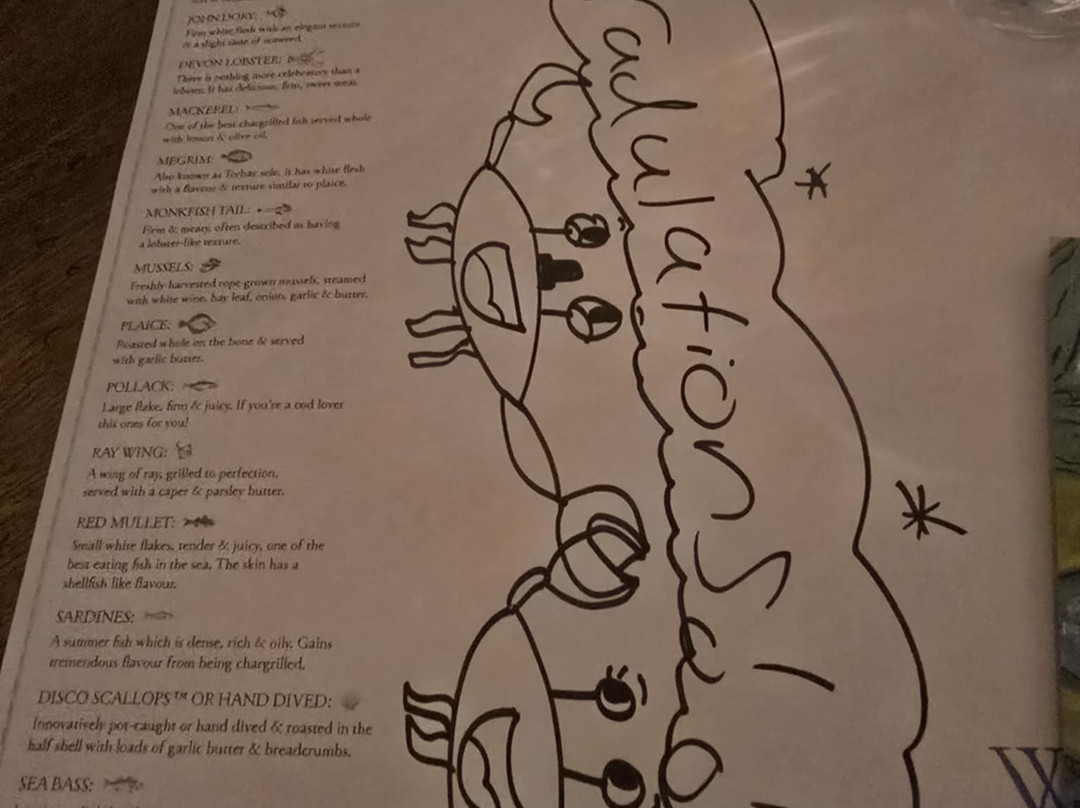 JOHN DORY:
Firm white flesh with an elegant texture
& a slight taste of seaweed.
DEVON LOBSTER:
There is nothing more celebratory than a
lobster. It has delicious, firm, sweet meat.
MACKEREL:
One of the best chargrilled fish served whole
with lemon & olive oil.
MEGRIM:
Also known as Torbay sole, it has white flesh
with a flavour & texture similar to plaice.
MONKFISH TAIL:
Firm & meaty, often described as having
a lobster-like texture.
MUSSELS:
Freshly harvested rope grown mussels, steamed
with white wine, bay leaf, onion, garlic & butter.
PLAICE:
Roasted whole on the bone & served
with garlic butter.
POLLACK:
Large flake, firm & juicy. If you're a cod lover
this ones for you!
RAY WING:
A wing of ray, grilled to perfection,
served with a caper & parsley butter.
RED MULLET:
Small white flakes, tender & juicy, one of the
best eating fish in the sea. The skin has a
shellfish like flavour.
SARDINES:
A summer fish which is dense, rich & oily. Gains
tremendous flavour from being chargrilled.
DISCO SCALLOPS™ OR HAND DIVED:
Innovatively pot-caught or hand dived & roasted in the
half shell with loads of garlic butter & breadcrumbs.
SEA BASS:
adulations
W